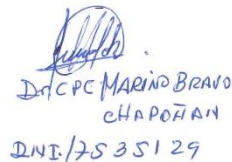 Dr CPC MARINO BRAVO
CHAPOÑAN
DNI/7535129